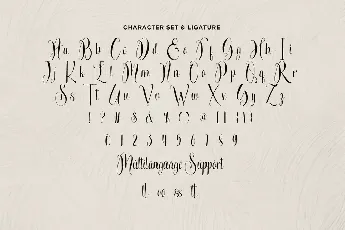 CHARACTER SET & LIGATURE
Aa Bb Cc Dd Ee Ff Gg Hh Ii
Jj Kk Ll Mm Nn Oo Pp Qq Rr
Ss Tt Uu Vv Ww Xx Yy Zz
! ? # $ & * () @ [] {}
0 1 2 3 4 5 6 7 8 9
Multilanguage Support
tt oo ss tt